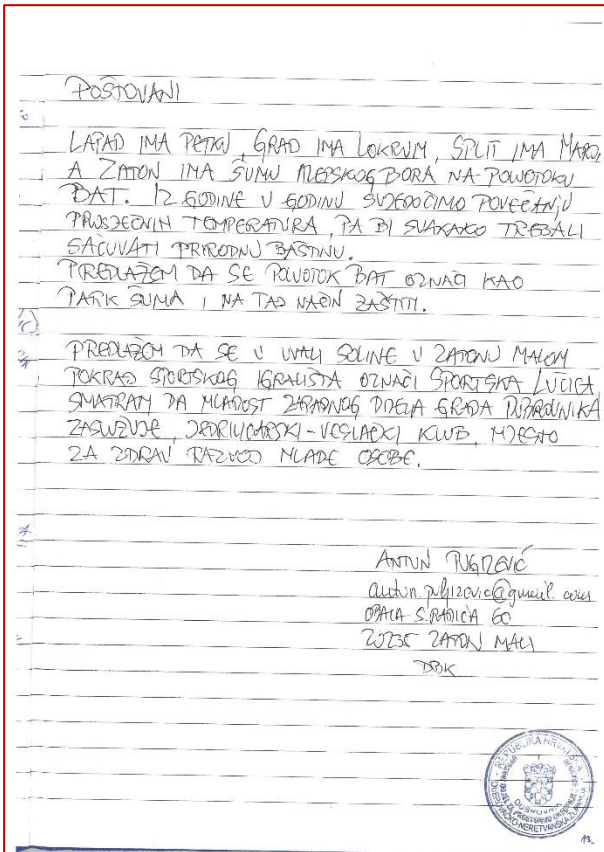 POŠTOVANI
LAPAD IMA PETKU, GRAD IMA LOKRUM, SPLIT IMA MARJ
A ZATON IMA ŠUMU ALEPSKOG BORA NA POLUOTOKU
BAT. IZ GODINE U GODINU SVJEDOČIMO POVEĆANJU
PROSJEČNIH TEMPERATURA, PA BI SVAKAKO TREBALI
SAČUVATI PRIRODNU BAŠTINU.
PREDLAŽEM DA SE POLUOTOK BAT OZNAČI KAO
PARK ŠUMA I NA TAJ NAČIN ZAŠTITI.
PREDLAŽEM DA SE U UVALI SOLINE U ZATONU MALOM
POKRAJ SPORTSKOG IGRALIŠTA OZNAČI SPORTSKA LUČICA,
SMATRAM DA MLADOST ZAPADNOG DIJELA GRADA DUBROVNIKA
ZASLUŽUJE, JEDRILIČARSKI-VESLAČKI KLUB, MJESTO
ZA ZDRAV RAZVOJ MLADE OSOBE.
ANTUN PUGIZEVIĆ
antun.pugizevic@gmail.com
OBALA S. RADIĆA 60
20235 ZATON MALI
DBK
REPUBLIKA HRVATSKA
DUBROVNIK
DUBROVAČKO-NERETVANSKA ŽUPANIJA
13.